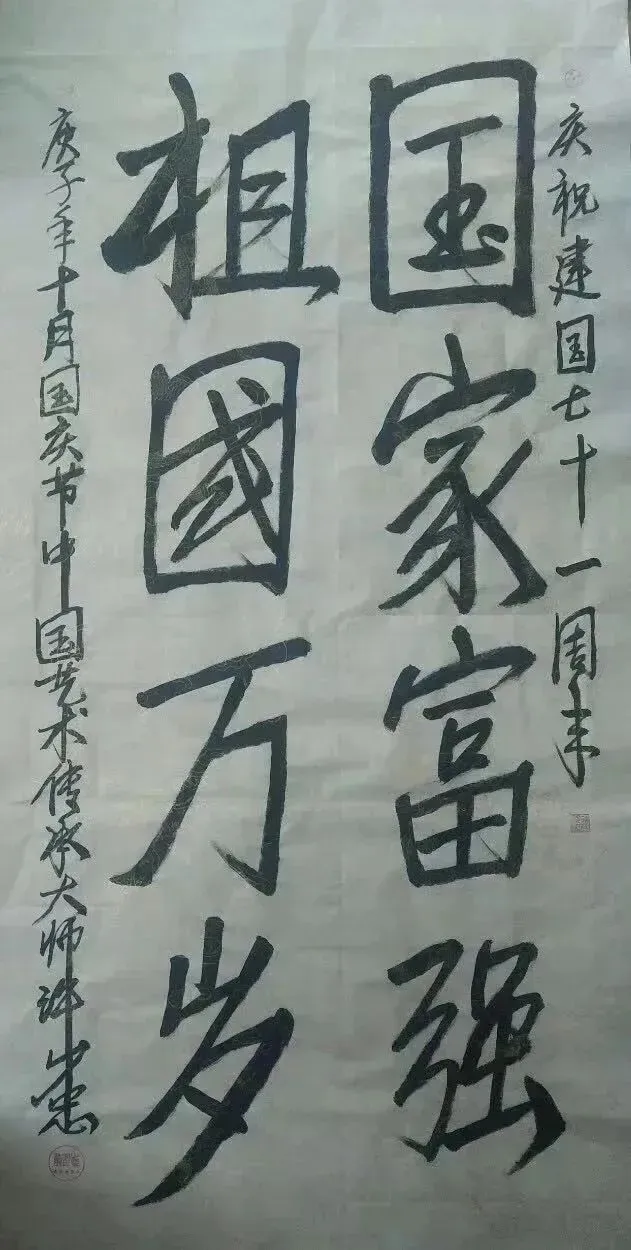 庆祝建国七十一周年
国家富强
祖國万岁
庚子年十月国庆节中国艺术传承大师许